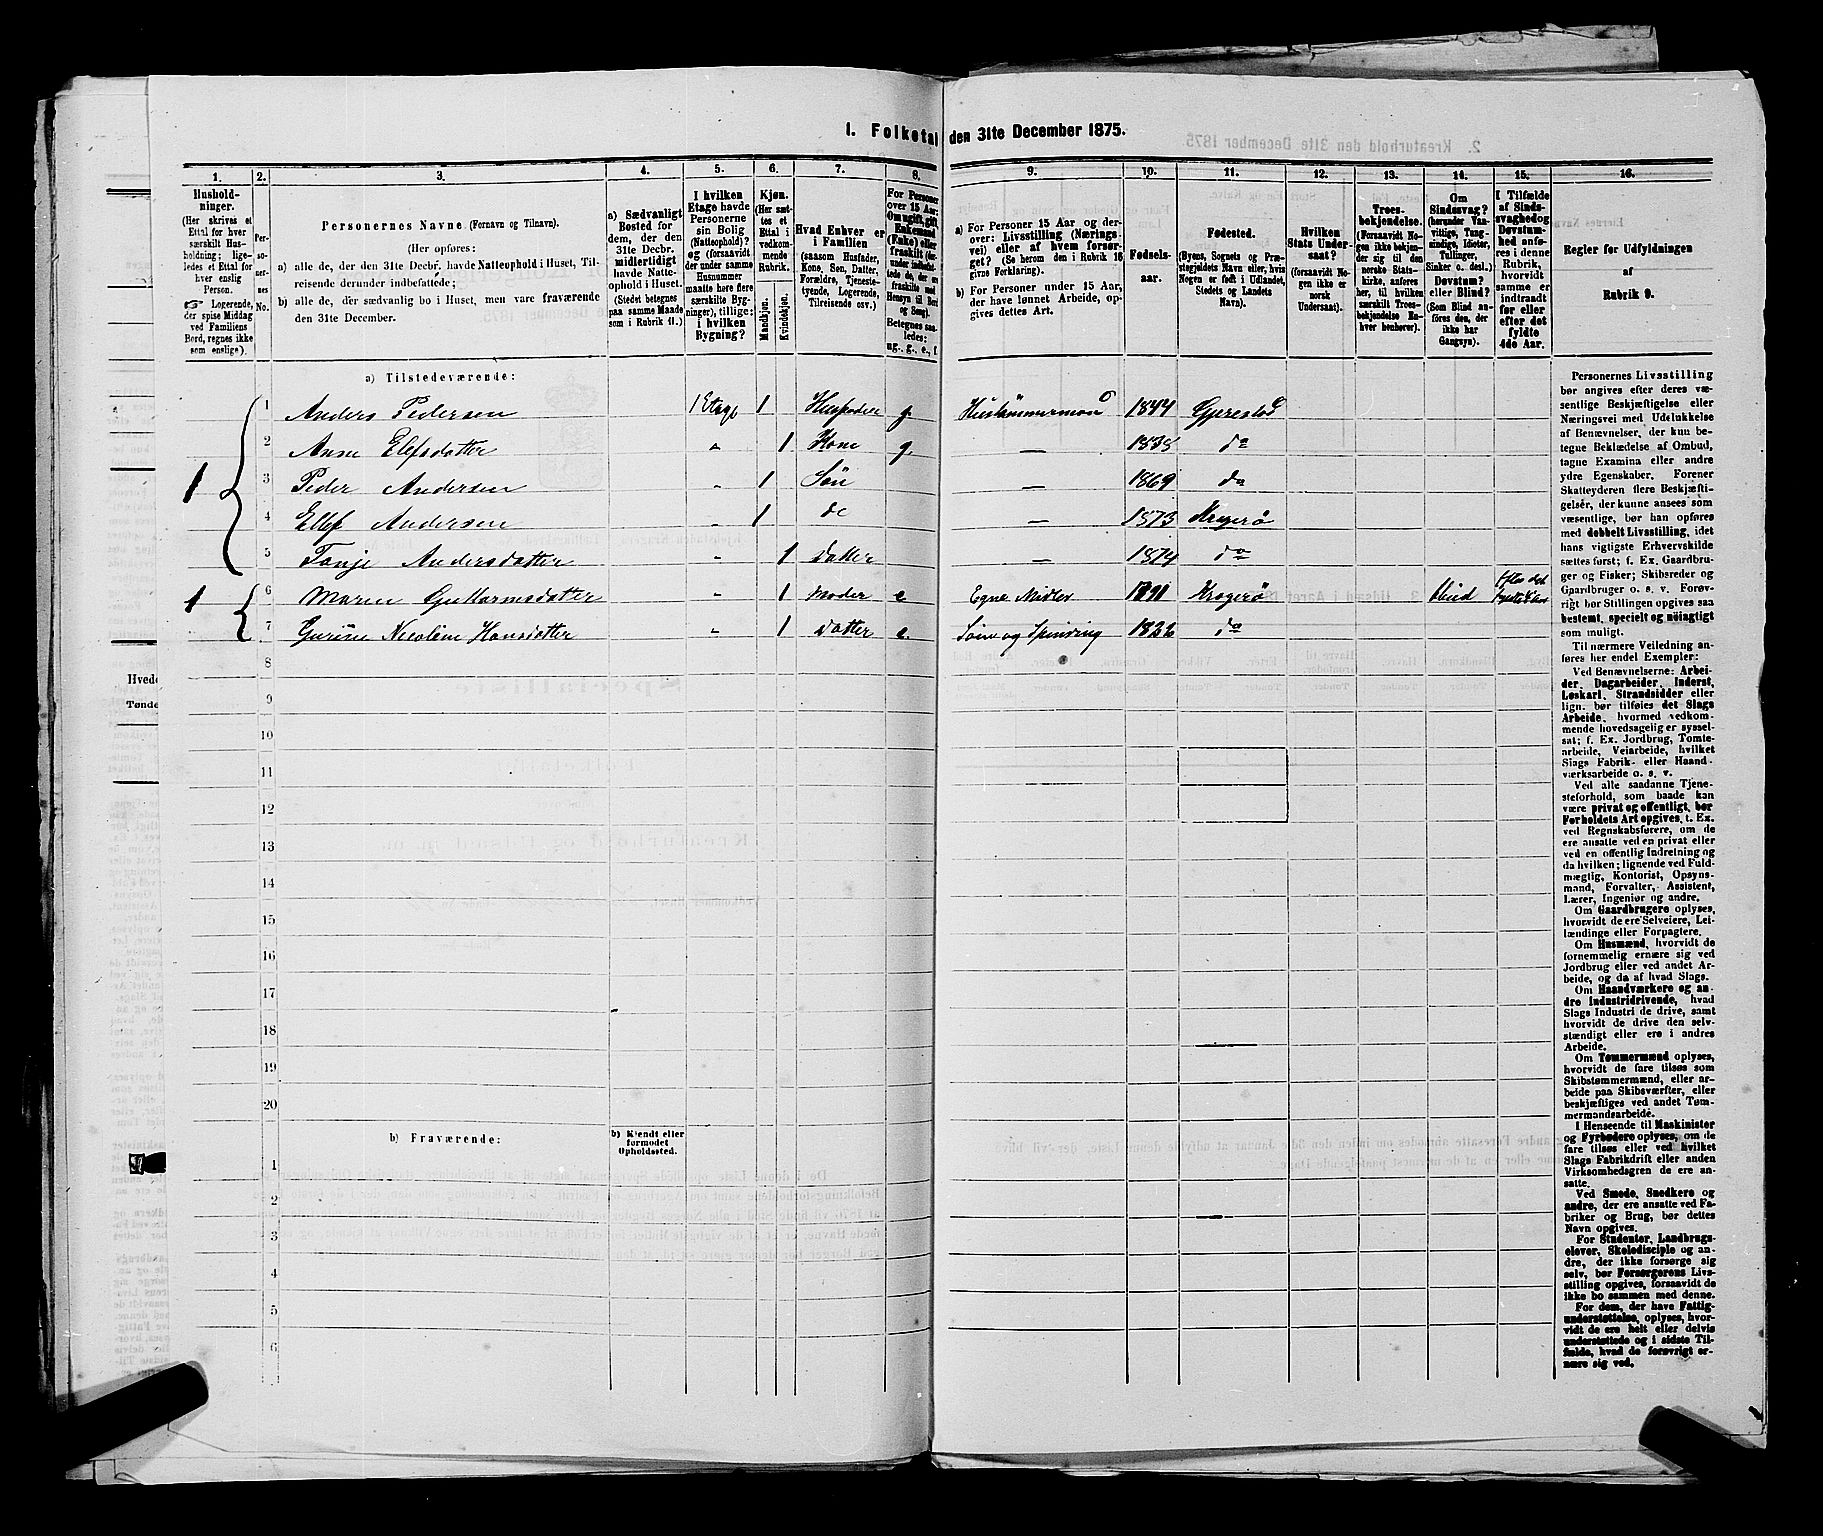 1. Folketal den 31te December 1875.
2. Kreaturhold den 31te December 1875
1. 2. 3. 4. 5. 6. 7. 8. 9. 10. 11. 12. 13. 14. 15. 16.
Hushold-
ninger.
(Her skrives et
Ettal for hver
særskilt Hus-
holdning; lige-
ledes et Ettal for
hver enslig
Person.
☞ Logerende,
der spise Middag
ved Familiens
Bord, regnes ikke
som enslige).
Per-
soner-
nes
No.
Personernes Navne (Fornavn og Tilnavn).
(Her opføres:
a) alle de, der den 31te Decbr. havde Natteophold i Huset, Til-
reisende derunder indbefattede;
b) alle de, der sædvanlig bo i Huset, men vare fraværende
den 31te December.
a) Sædvanligt
Bosted for
dem, der den
31te Decbr.
midlertidigt
havde Natte-
ophold i Huset.
(Stedet betegnes
paa samme Maade
som i Rubrik 11.)
I hvilken
Etage havde
Personerne
sin Bolig
(Natteophold)?
og (forsaavidt
der under samme
Husnummer
maatte høre flere
særskilte Byg-
ninger), tillige:
i hvilken
Bygning?
Kjøn.
(Her sæt-
tes et
Ettal i
vedkom-
mende
Rubrik.
Mandkjøn.
Kvindekjøn.
Hvad Enhver er
i Familien
(saasom Husfader,
Kone, Søn, Datter,
Forældre, Tjeneste-
tyende, Logerende,
Tilreisende osv.)
For Personer
over 15 Aar:
Om ugift, gift,
Enkemand
(Enke) eller
fraskilt
Betegnes saa-
ledes:
ug., g., e., f.
a) For Personer 15 Aar og der-
over: Livsstilling (Nærings-
vei) eller af hvem forsør-
get? (Se herom den i Rubrik 16
givne Forklaring).
b) For Personer under 15 Aar,
der have lønnet Arbeide, op-
gives dettes Art.
Fødsels-
aar.
Fødested.
(Byens, Sognets og Præ-
stegjeldets Navn eller, hvis
Nogen er født i Udlandet,
Stedets og Landets
Navn).
Hvilken
Stats Under-
saat?
(forsaavidt No-
gen ikke er
norsk
Undersaat).
Troes-
bekjendelse.
(Forsaavidt No-
gen ikke bekjen-
der sig til den
norske Stats-
kirke, anføres
her, til hvilken
særskilt Troes-
bekjendelse En-
hver henhører).
Om
Sindssvag?
(herunder Van-
vittige, Tung-
sindige, Idioter,
Tullinger,
Sinker o. desl.)
Døvstum?
eller Blind?
(Som Blind an-
føres den, der
ikke har
Gangsyn).
I Tilfælde
af Sinds-
svaghed og
Døvstum-
hed anfø-
res i denne
Rubrik,
hvorvidt
samme er
indtraadt
før eller
efter det
fyldte
4de Aar.
Regler for Udfyldningen
af
Rubrik 9.
a) Tilstedeværende:
1 1 Anders Pedersen 1 Etage 1 Husfader g. 1844 Gjerestad
2 Anne Elefsdatter " 1 Kone g. — 1838 do
3 Peder Andersen " 1 Søn — 1869 do
4 Ellef Andersen " 1 do — 1873 Kragerø
5 Tonje Andersdatter " 1 Datter — 1874 do
1 6 Maren Guttormsdatter " 1 Moder e Egne Midler 1791 Kragerø blind
7 Gurine Nicoline Hansdatter " 1 Datter e. Søm og Spinding 1822 do
8
9
10
11
12
13
14
15
16
17
18
19
20
b) Fraværende:
b) Kjendt eller
formodet
Opholdssted.
1
2
3
4
5
6
Personernes Livsstilling
bør angives efter deres væ-
sentlige Beskjæftigelse eller
Næringsvei med Udelukkelse
af Benævnelser, der kun be-
tegne Beklædelse af Ombud,
tagne Examina eller andre
ydre Egenskaber. Forener
Skatteyderen flere Beskjæfti-
gelser, der kunne ansees som
væsentlige, bør han opføres
med dobbelt Livsstilling, idet
hans vigtigste Erhvervskilde
sættes først; f. Ex. Gaardbru-
ger og Fisker; Skibsreder og
Gaardbruger o. s. v. Forøv-
rigt bør Stillingen opgives saa
bestemt, specielt og nøiagtigt
som muligt.
Til nærmere Veiledning an-
føres her endel Exempler:
Ved Benævnelserne: Arbei-
der, Dagarbeider, Inderst,
Løskarl, Strandsidder eller
lign. bør tilføies det Slags
Arbeide, hvormed vedkom-
mende hovedsagelig er syssel-
sat; f. Ex. Jordbrug, Tomte-
arbeide, Veiarbeide, hvilket
Slags Fabrik- eller Haand-
værksarbeide o. s. v.
Ved alle saadanne Tjene-
steforhold, som baade kan
være privat og offentligt, bør
Forholdets Art opgives, t. Ex.
ved Regnskabsførere, om de
ere ansatte ved en privat eller
ved en offentlig Indretning og
da hvilken; lignende ved Fuld-
mægtig, Kontorist, Opsyns-
mand, Forvalter, Assistent,
Lærer, Ingeniør og andre.
Om Gaardbrugere oplyses,
hvorvidt de ere Selveiere, Lei-
lændinge eller Forpagtere.
Om Husmænd, hvorvidt de
fornemmelig ernære sig ved
Jordbrug eller ved andet Ar-
beide, og da af hvad Slags.
Om Haandværkere og an-
dre Industridrivende, hvad
Slags Industri de drive, samt
hvorvidt de drive den selv-
stændigt eller ere i andres
Arbeide.
Om Tømmermænd oplyses,
hvorvidt de fare tilsøs som
Skibstømmermænd, eller ar-
beide paa Skibsværfter, eller
beskjæftiges ved andet Tøm-
mermandsarbeide.
I Henseende til Maskinister
og Fyrbødere oplyses, om de
fare tilsøs eller ved hvilket
Slags Fabrikdrift eller anden
Virksomhedsgren de ere an-
satte.
Ved Smede, Snedkere og
andre, der ere ansatte ved Fa-
briker og Brug, bør dettes
Navn opgives.
For Studenter, Landbrugs-
elever, Skoledisciple og an-
dre, der ikke forsørge sig
selv, bør Forsørgerens Livs-
stilling opgives, forsaavidt de
ikke bo sammen med denne.
For dem, der have Fattig-
understøttelse, oplyses, hvor-
vidt de ere helt eller delvis
understøttede og i sidste Til-
fælde, hvad de forøvrigt er-
nære sig ved.
Hvede
Tønde